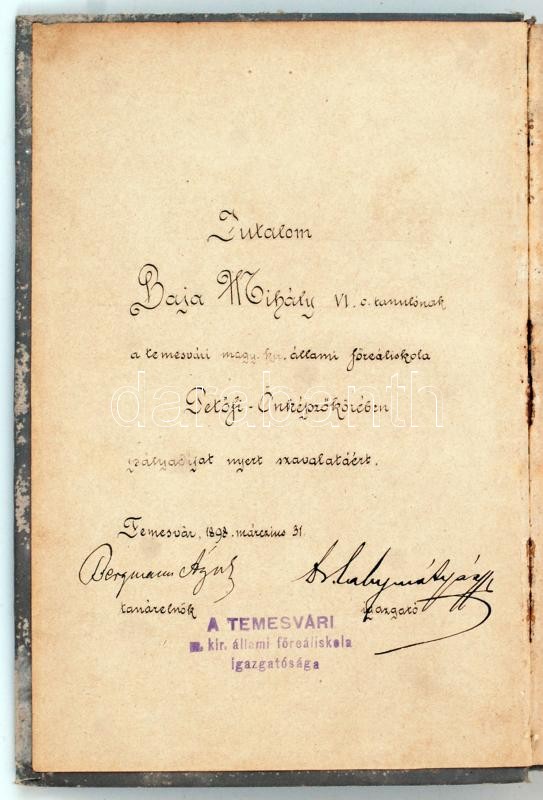 Jutalom
Baja Mihály VI. o. tanulónak
a temesvári magy. kir. állami főreáliskola
Petőfi-Önképzőkörében
pályadíjat nyert szavalatáért.
Temesvár, 1898. márczius 31.
Bergmann Ágost
tanárelnök igazgató
A TEMESVÁRI
m. kir. állami főreáliskola
igazgatósága
darabanth